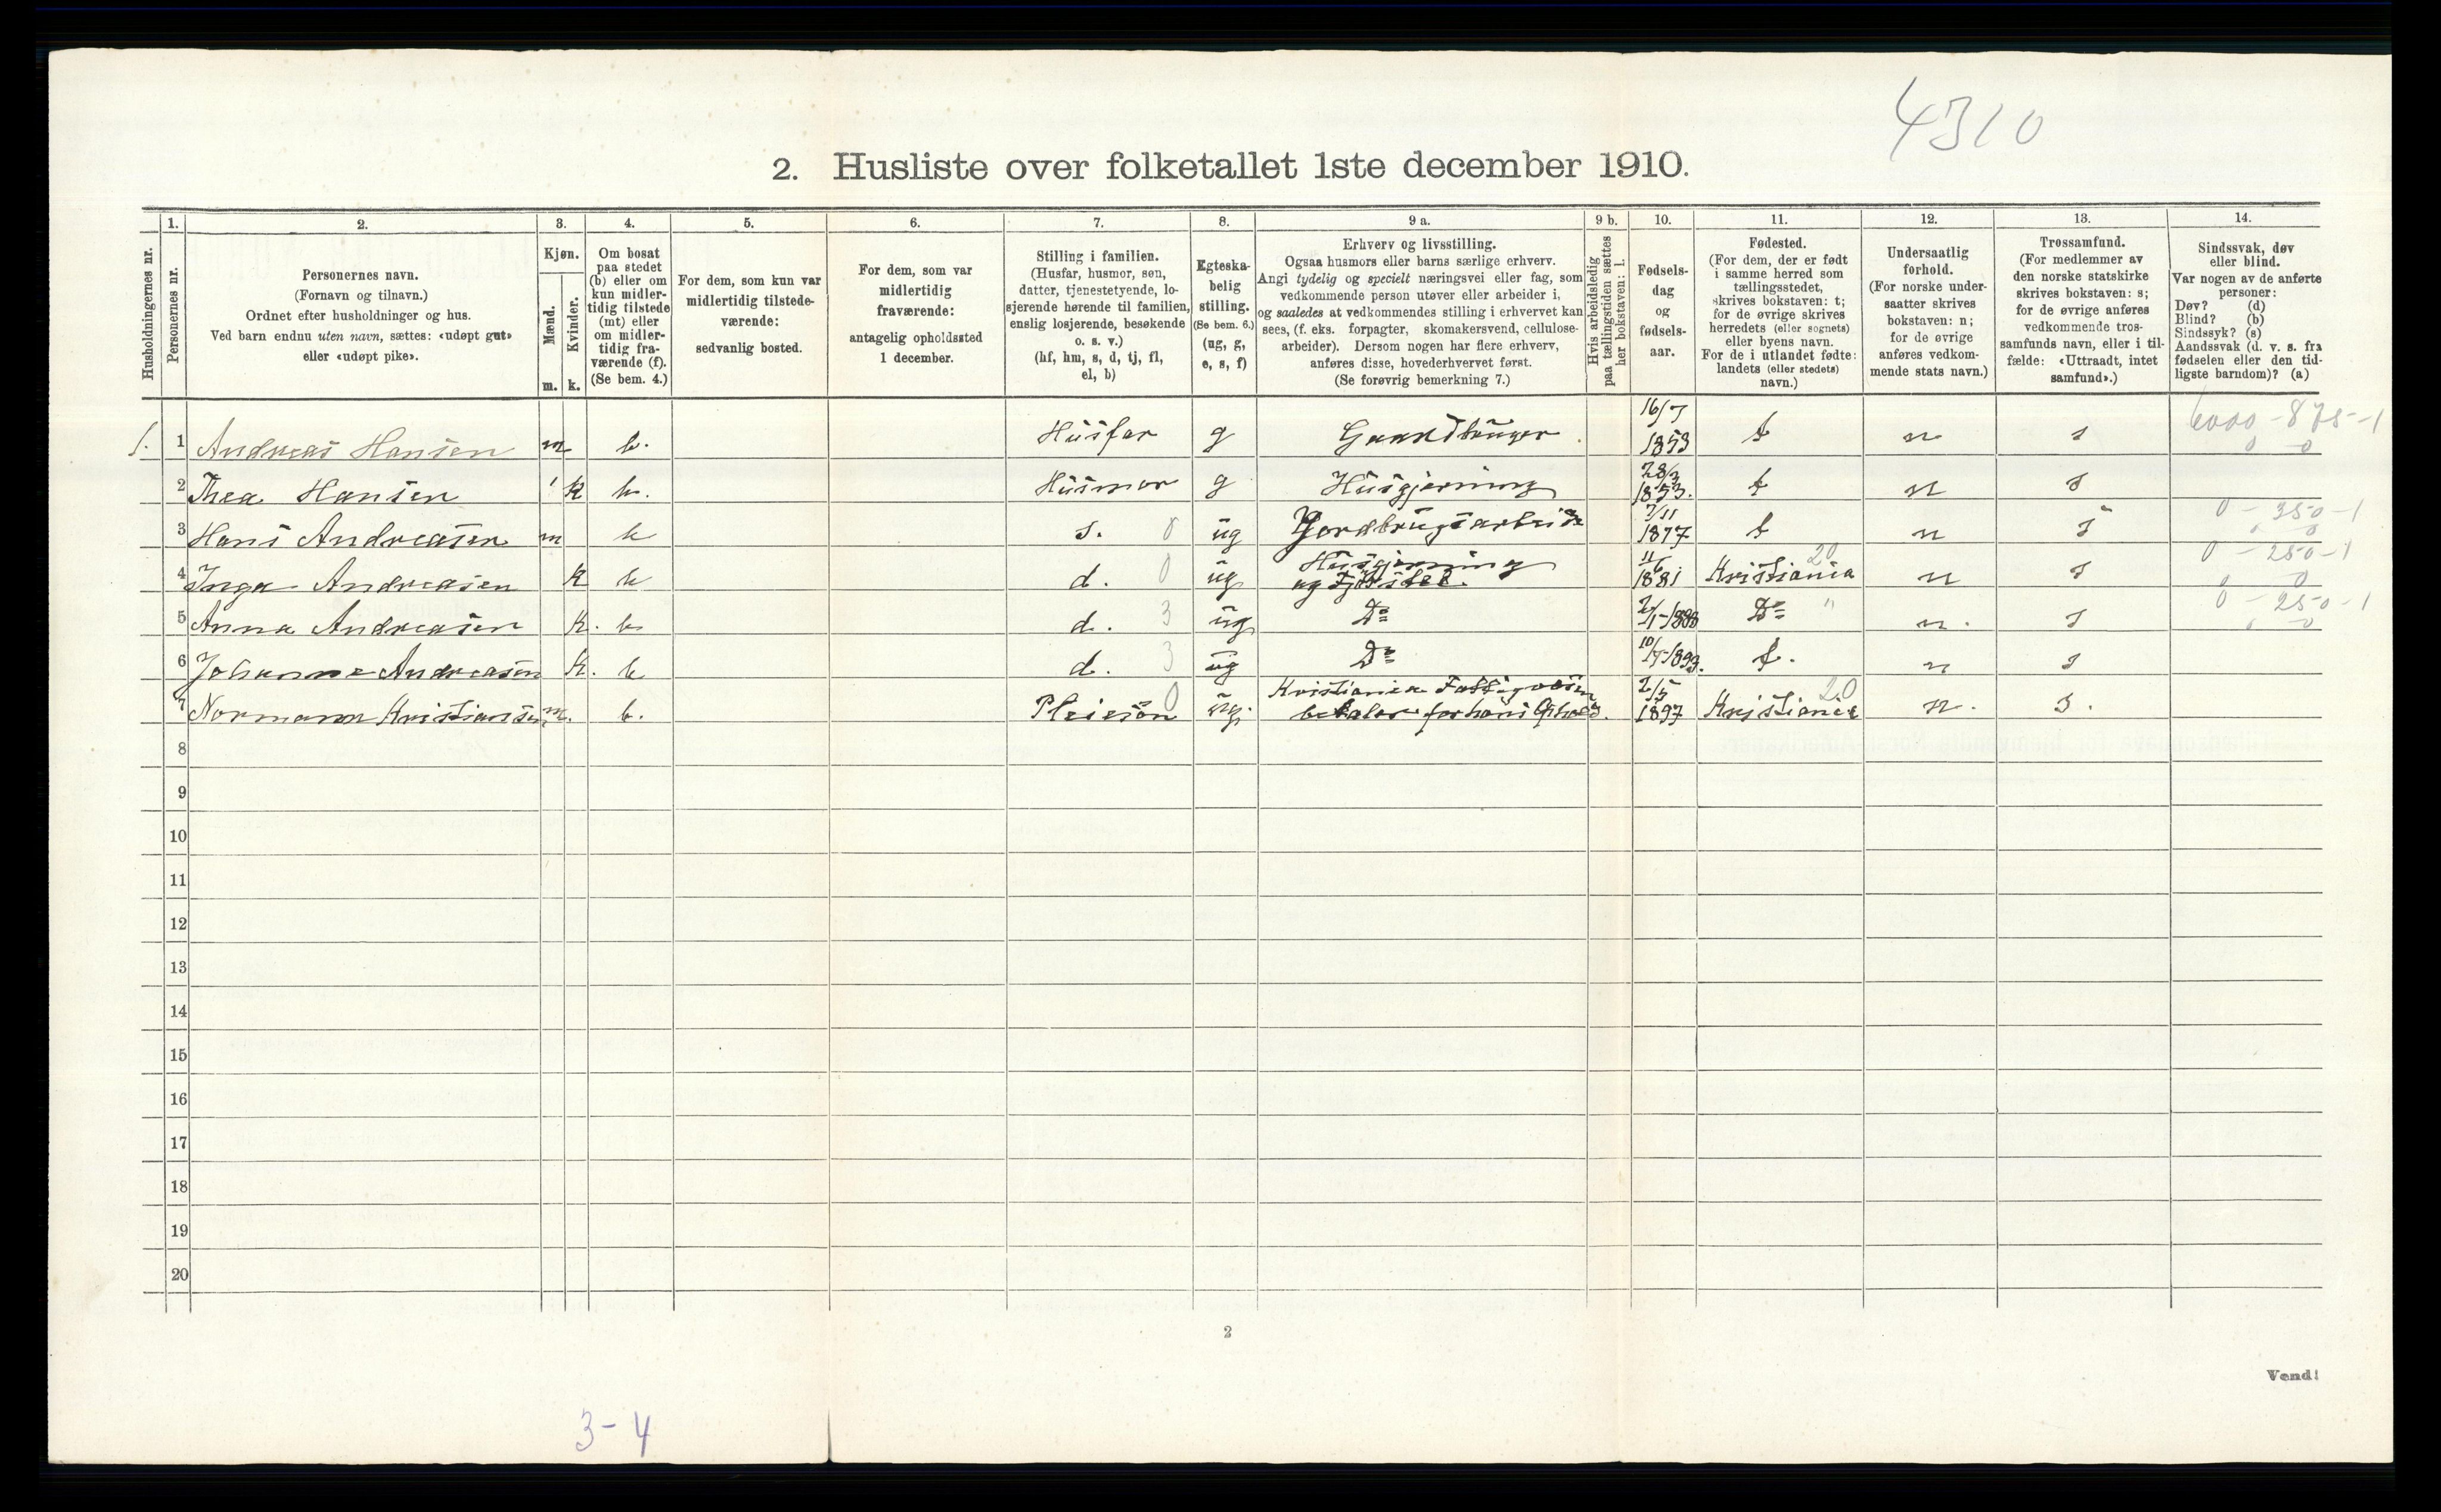 4310
2. Husliste over folketallet 1ste december 1910.
Husholdningernes nr.
1.
Personernes nr.
2.
Personernes navn.
(Fornavn og tilnavn.)
Ordnet efter husholdninger og hus.
Ved barn endnu uten navn, sættes: «udøpt gut»
eller «udøpt pike».
3.
Kjøn.
Mænd.
m.
Kvinder.
k.
4.
Om bosat
paa stedet
(b) eller om
kun midler-
tidig tilstede
(mt) eller
om midler-
tidig fra-
værende (f).
(Se bem. 4.)
5.
For dem, som kun var
midlertidig tilstede-
værende:
sedvanlig bosted.
6.
For dem, som var
midlertidig
fraværende:
antagelig opholdssted
1 december.
7.
Stilling i familien.
(Husfar, husmor, søn,
datter, tjenestetyende, lo-
sjerende hørende til familien,
enslig losjerende, besøkende
o. s. v.)
(hf, hm, s, d, tj, fl,
el, b)
8.
Egteska-
belig
stilling.
(Se bem. 6.)
(ug, g,
e, s, f)
9 a.
Erhverv og livsstilling.
Ogsaa husmors eller barns særlige erhverv.
Angi tydelig og specielt næringsvei eller fag, som
vedkommende person utøver eller arbeider i,
og saaledes at vedkommendes stilling i erhvervet kan
sees, (f. eks. forpagter, skomakersvend, cellulose-
arbeider). Dersom nogen har flere erhverv,
anføres disse, hovederhvervet først.
(Se forøvrig bemerkning 7.)
9 b.
Hvis arbeidsledig
paa tællingstiden sættes
her bokstaven: l.
10.
Fødsels-
dag
og
fødsels-
aar.
11.
Fødested.
(For dem, der er født
i samme herred som
tællingsstedet,
skrives bokstaven: t;
for de øvrige skrives
herredets (eller sognets)
eller byens navn.
For de i utlandet fødte:
landets (eller stedets)
navn.)
12.
Undersaatlig
forhold.
(For norske under-
saatter skrives
bokstaven: n;
for de øvrige
anføres vedkom-
mende stats navn.)
13.
Trossamfund.
(For medlemmer av
den norske statskirke
skrives bokstaven: s;
for de øvrige anføres
vedkommende tros-
samfunds navn, eller i til-
fælde: «Uttraadt, intet
samfund».)
14.
Sindssvak, døv
eller blind.
Var nogen av de anførte
personer:
Døv? (d)
Blind? (b)
Sindssyk? (s)
Aandssvak (d. v. s. fra
fødselen eller den tid-
ligste barndom)? (a)
1. 1 Andreas Hansen m b. Husfar g Gaardbruger 16/7 1853 t n s 6000-875-1 0 0
2 Thea Hansen k b. Husmor g Husgjerning 28/3 1853. t n s
3 Hans Andreasen m b s. 0 ug Jordbrugsarbeide 7/11 1877 t n s 0-350-1
4 Inga Andreasen K b d. 0 ug Husgjerning og Fjøsstel. 11/6 1881 Kristiania 20 n s 0-250-1 0 0
5 Anna Andreasen K. b d. 3 ug Do 1888 Do " n. s 0-250-1
6 Johanne Andreasen K. b d. 3 ug Do 1893. t. n s
7 Normann Kristiansen m. b. Pleiesön 0 ug. Kristiania Fattigvæsen betaler for hans Ophold. 2/5 1897 Kristiania 20 n. s.
8
9
10
11
12
13
14
15
16
17
18
19
20
2
Vend!
3-4